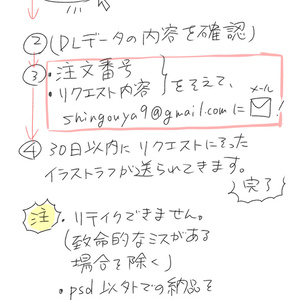 ②(DLデータの内容を確認)
③・注文番号
・リクエスト内容
をそえて、
shingouya9@gmail.comに
メール
!
④30日以内にリクエストにそった
イラストラフが送られてきます。
完了
注・リテイクできません。
(致命的なミスがある
場合を除く)
・psd以外での納品を